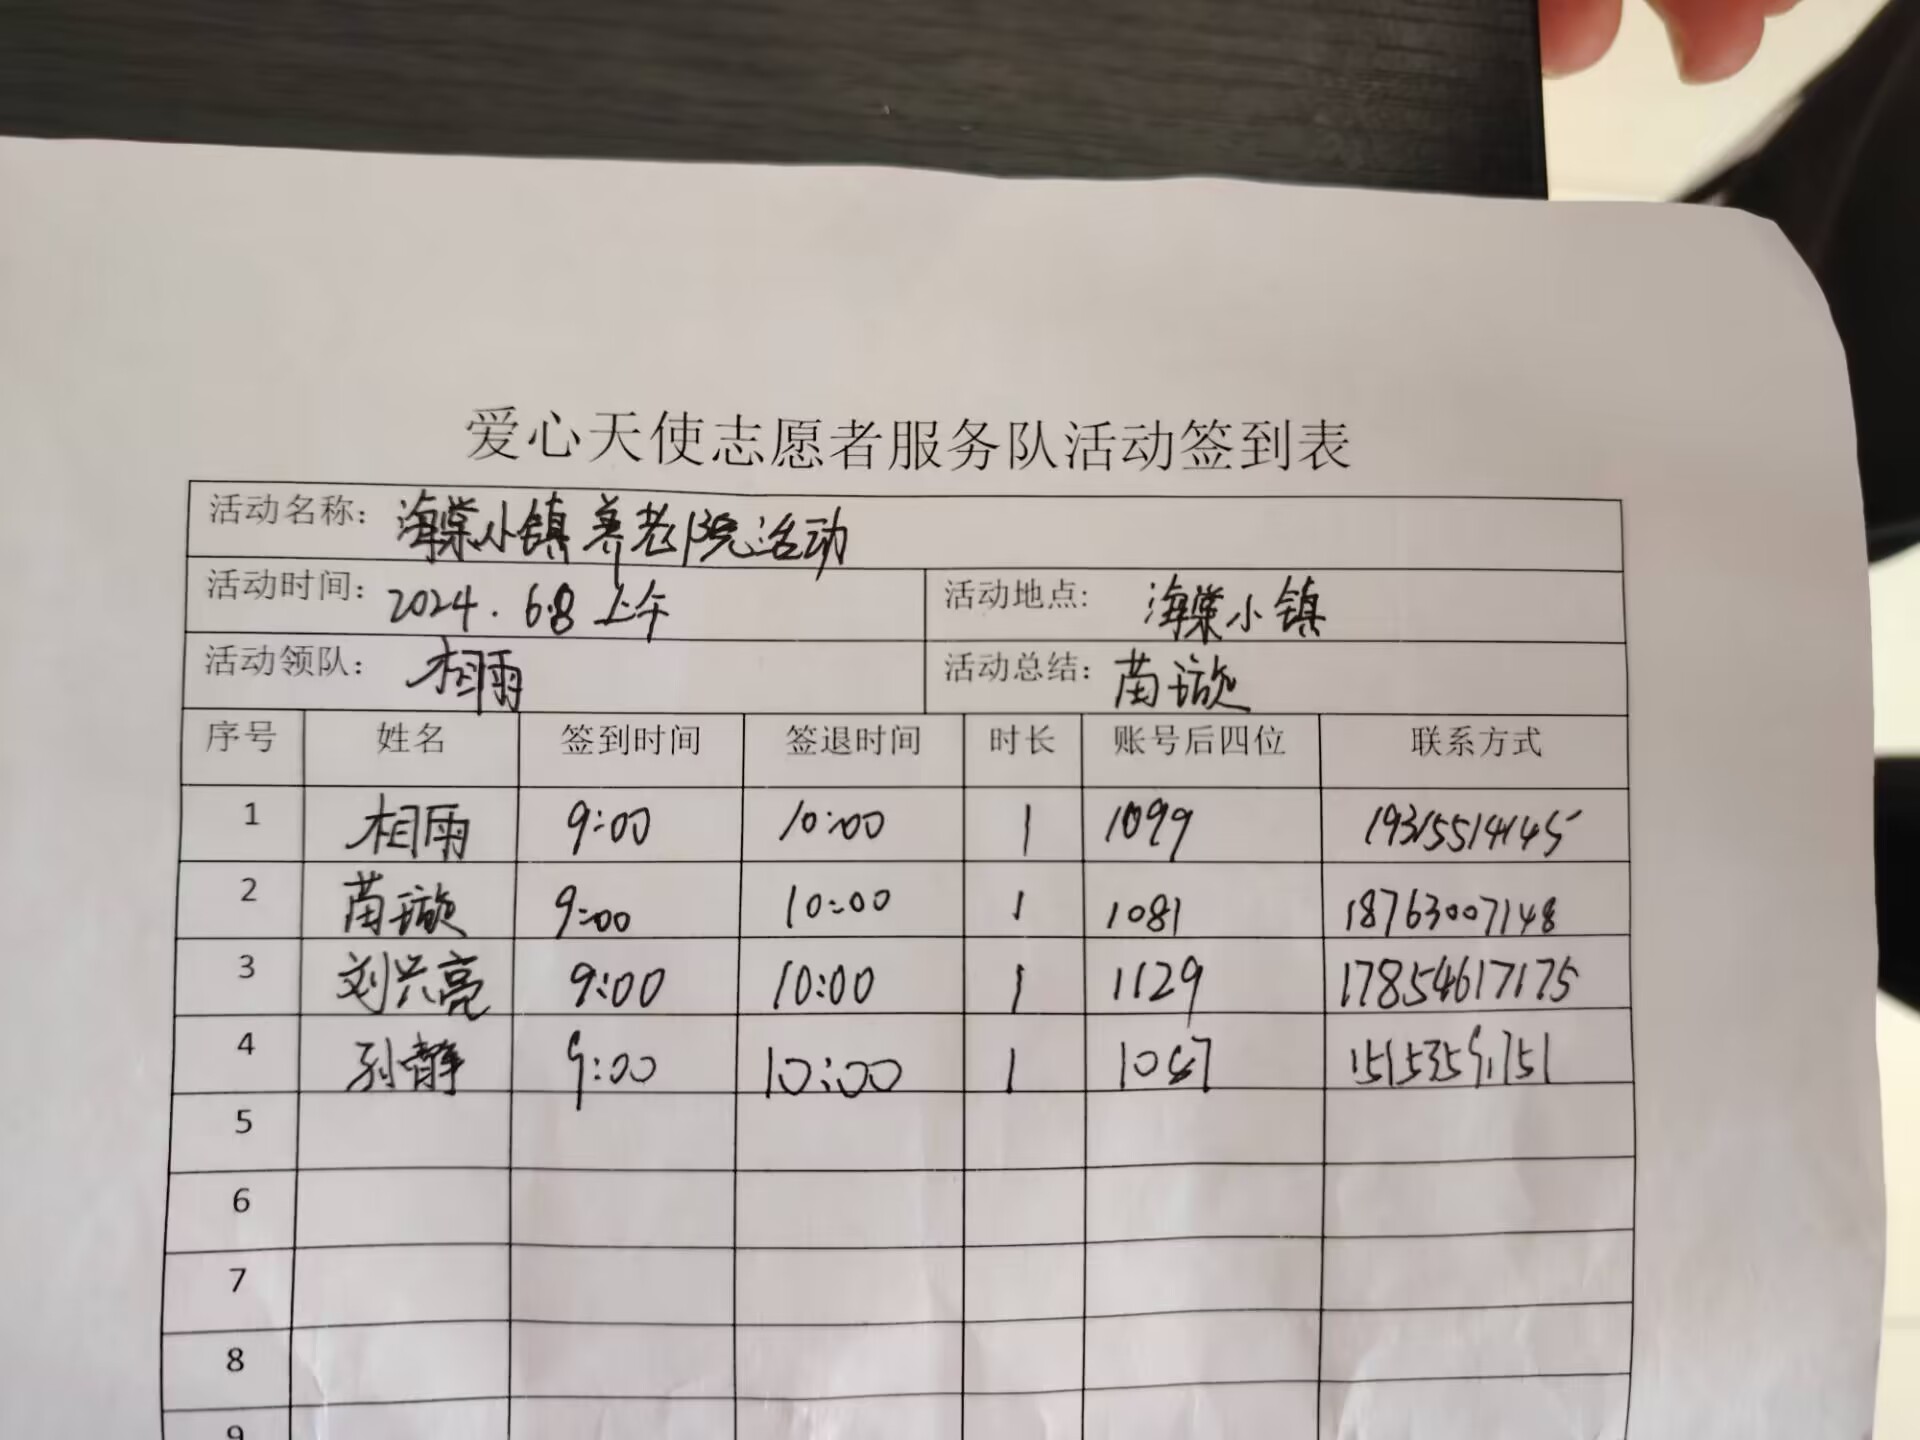 爱心天使志愿者服务队活动签到表
活动名称: 海棠小镇养老院活动
活动时间: 2024.6.8 上午 活动地点: 海棠小镇
活动领队: 相雨 活动总结: 苗璇
序号 姓名 签到时间 签退时间 时长 账号后四位 联系方式
1 相雨 9:00 10:00 1 1099 19315514145
2 苗璇 9:00 10:00 1 1081 18763007148
3 刘兴亮 9:00 10:00 1 1129 17854617175
4 孙静 9:00 10:00 1
5
6
7
8
9